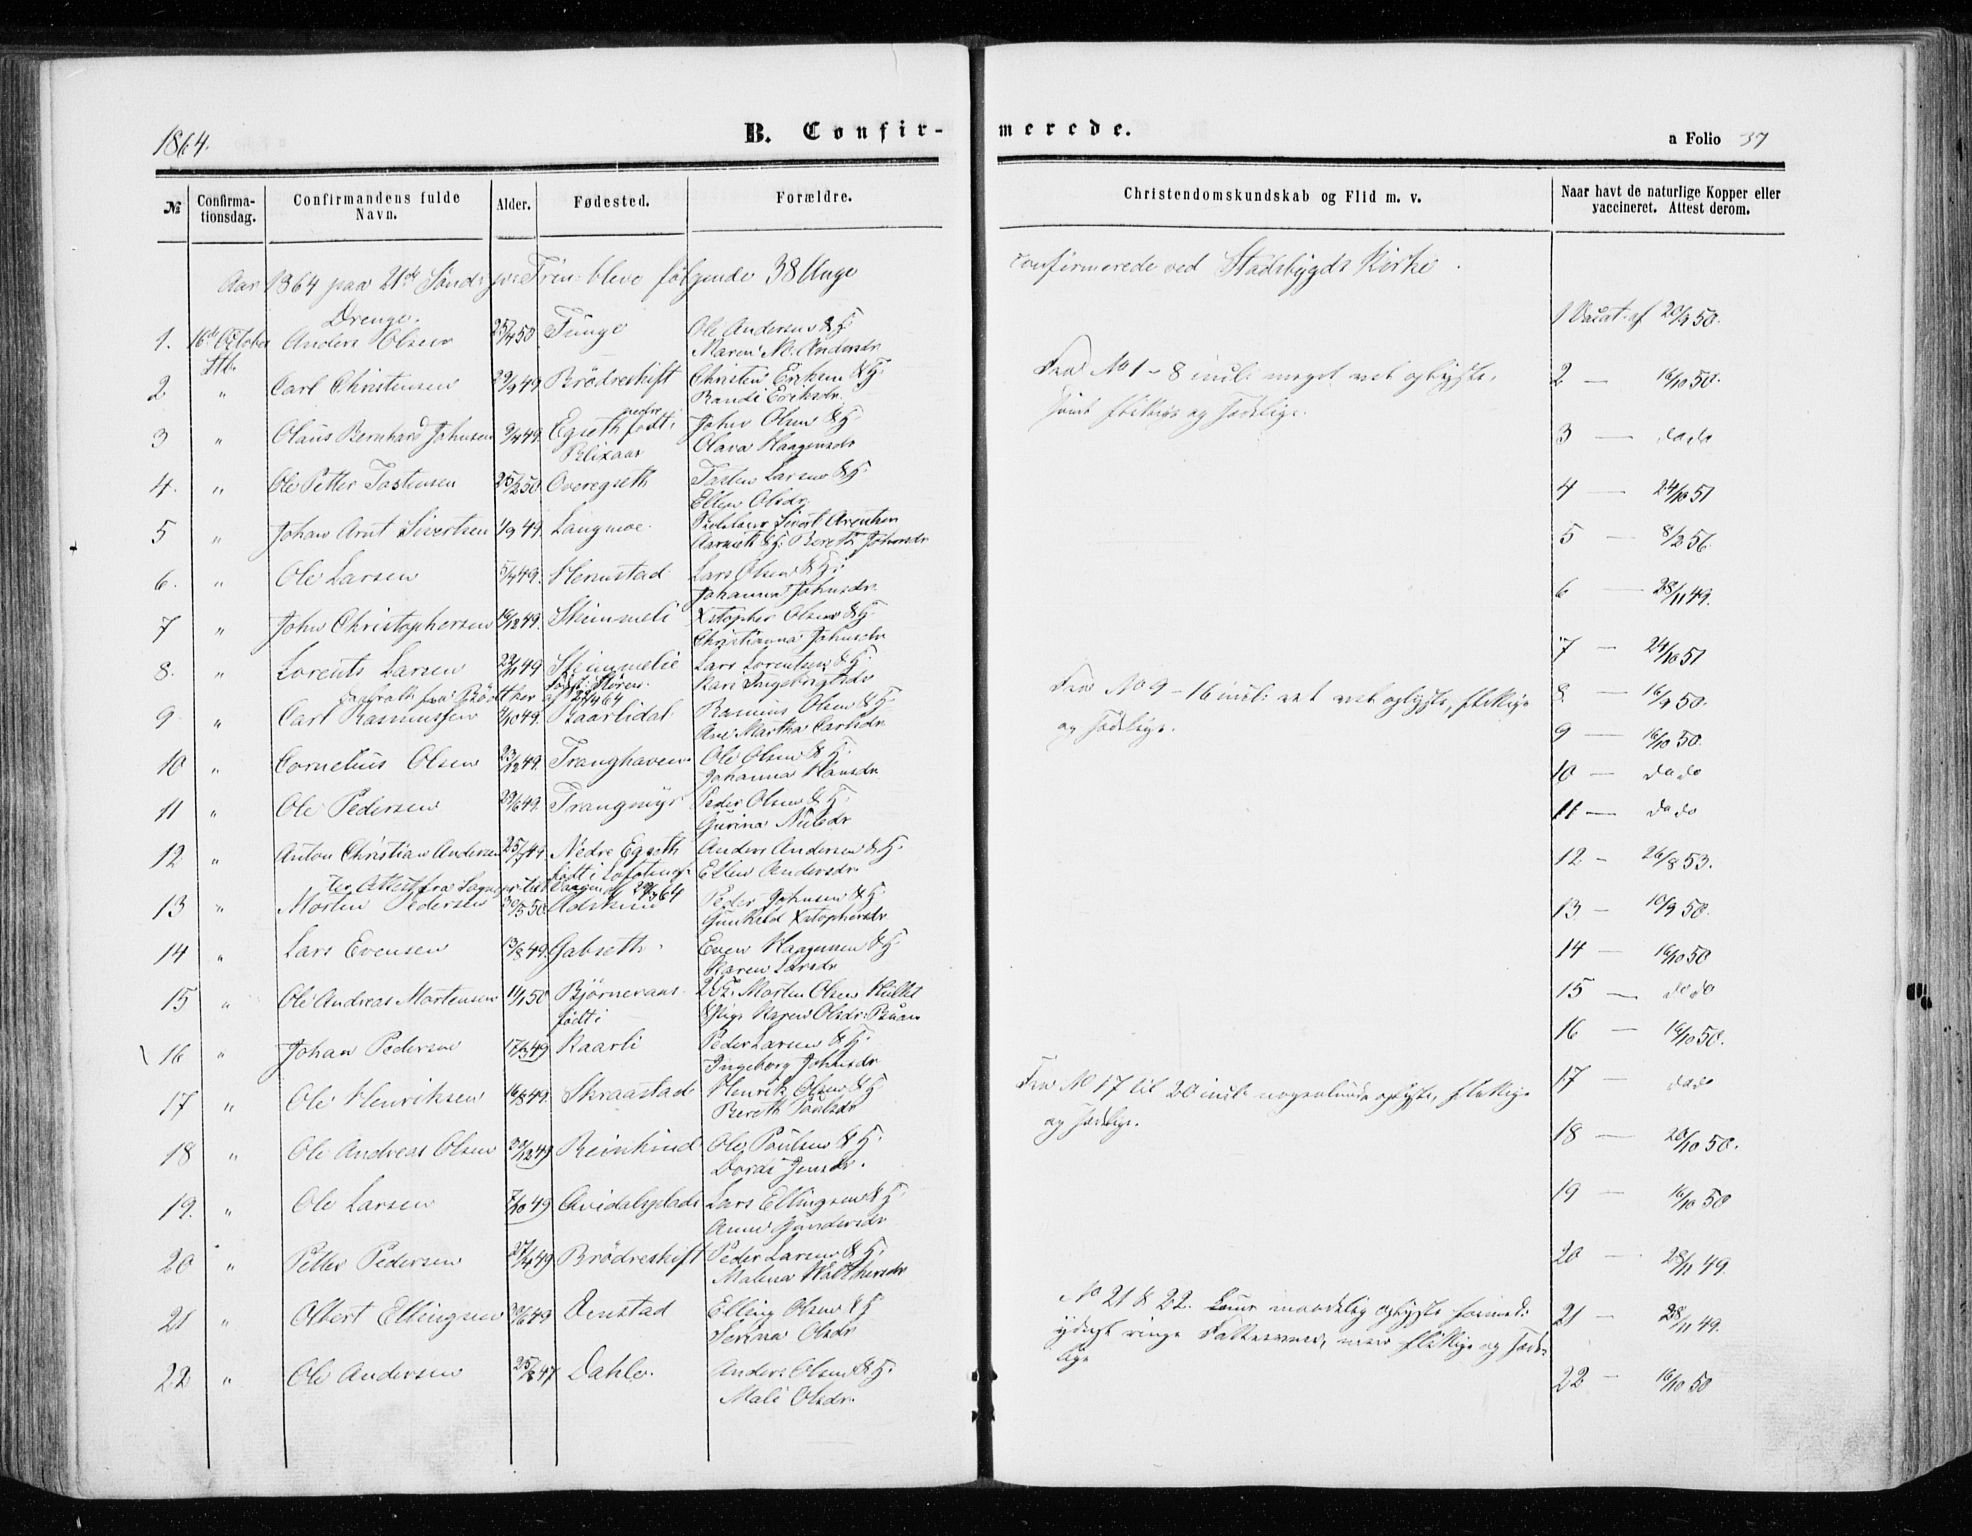 1864.
B. Confir-
merede.
a Folio 37
№
Confirma-
tionsdag.
Confirmandens fulde
Navn.
Alder.
Fødested.
Forældre.
Christendomskundskab og Flid m. v.
Naar havt de naturlige Kopper eller
vaccineret. Attest derom.
Aar 1864 paa 21de Sönd: p. Trin: bleve følgende 38 Unge confirmerede ved Stadsbygds Kirke.
Drenge.
1. 16de October Anders Olsen 25/4 50 Tunge Ole Andersen & H:
Maren M. Andersdr 1 Vacat. af 20/9 50.
2 " Carl Christensen 29/9 49 Brödreskift Christen Eriksen & H:
Randi Eriksdr. 2 — 16/10 50.
Fra No 1 - 8 incl: meget vel oplyste,
samt flittige og sædelige.
3 " Olaus Bernhard Johnsen 9/4 49. Egseth nedre født i John Olsen & H:
Blixaas Olava Haagensdr 3 — do do
4. " Ole Petter Tostensen 25/2 50 Overegseth Tosten Larsen & H:
Ellen Olsdr. 4 — 24/10 51
5 " Johan Arnt Sivertsen 1/9 49 Langmoe. Sivert Arentsen
& H: Bereth Johnsdr 5 — 8/2 56.
6. " Ole Larsen 5/7 49. Hernstad Lars Olsen & H:
Johanna Johnsdr. 6 — 28/11 49.
7 " John Christophersen 16/12 49. Skimmeli Xstopher Olsen & H:
Christianna Johnsdr 7 — 24/10 51
8. " Lorents Larsen 22/11 49 Skimmelie Lars Lorentsen & H:
født i Støren. Kari Ingebrigtsdr 8 — 16/9 50.
Fra No 9 - 16 incl: vel oplyste, flittige
og sædelige.
9 " Carl Rasmussen 4/10 49. Kaarlidal Rasmus Olsen & H:
Ane Martha Carlsdr 9 — 16/10 50.
10 " Cornelius Olsen 23/12 49. Tranghaven Ole Olsen & H:
Johanna Hansdr 10 — do do
11 " Ole Pedersen 29/6 49. Trangmyr Peder Olsen & H:
Gurina Nilsdr 11 — do do
12 " Anton Christian Andersen 25/7 49. Nedre Egseth Anders Andersen & H:
født i Lofoten Ellen Andersdr. 12 - 26/8 53.
13 " Morten Pedersen 30/5 50 Peder Johnsen & H:
Gunhild Xstophersdr 13 — 10/9 50.
14 " Lars Evensen 13/8 49. Gabseth. Even Haagensen & H:
Karen Larsdr 14 — 16/10 50
15 " Ole Andreas Mortensen 11/1 50 Björneraas. Morten Olsen
født i Pige Karen Olsdr: 15 — do do
16 " Johan Pedersen 17/3 49 Kaarli Peder Larsen & H:
Ingeborg Johnsdr 16 — 16/10 50.
17 " Ole Henriksen 16/8 49. Skraastad Henrik Olsen & H:
Bereth Paulsdr 17 — do do
Fra No 17 til 20 incl: nogenlunde oplyste, flittige
og sædelige.
18 " Ole Andreas Olsen 30/12 49 Reinkind Ole Paulsen & H:
Jensdr. 18 — 20/10 50.
19. " Ole Larsen 7/10 49 Lars Ellingsen & H:
Anne Gundersdr 19 — 16/10 50
20 " Petter Pedersen 27/4 49 Brödreskift Peder Larsen & H:
Malena Walthersdr 20 — 28/11 49.
21 " Albert Ellingsen 30/6 49 Denstad Elling Olsen & H:
Serina Olsdr. 21 — 28/11 49.
No 21 & 22. maadelig oplyste formed:
yderst ringe Fatteevner, men flittige og sæde-
lige
22 " Ole Andersen 25/8 47 Dahle. Anders Olsen & H:
Mali Olsdr. 22 — 16/10 50